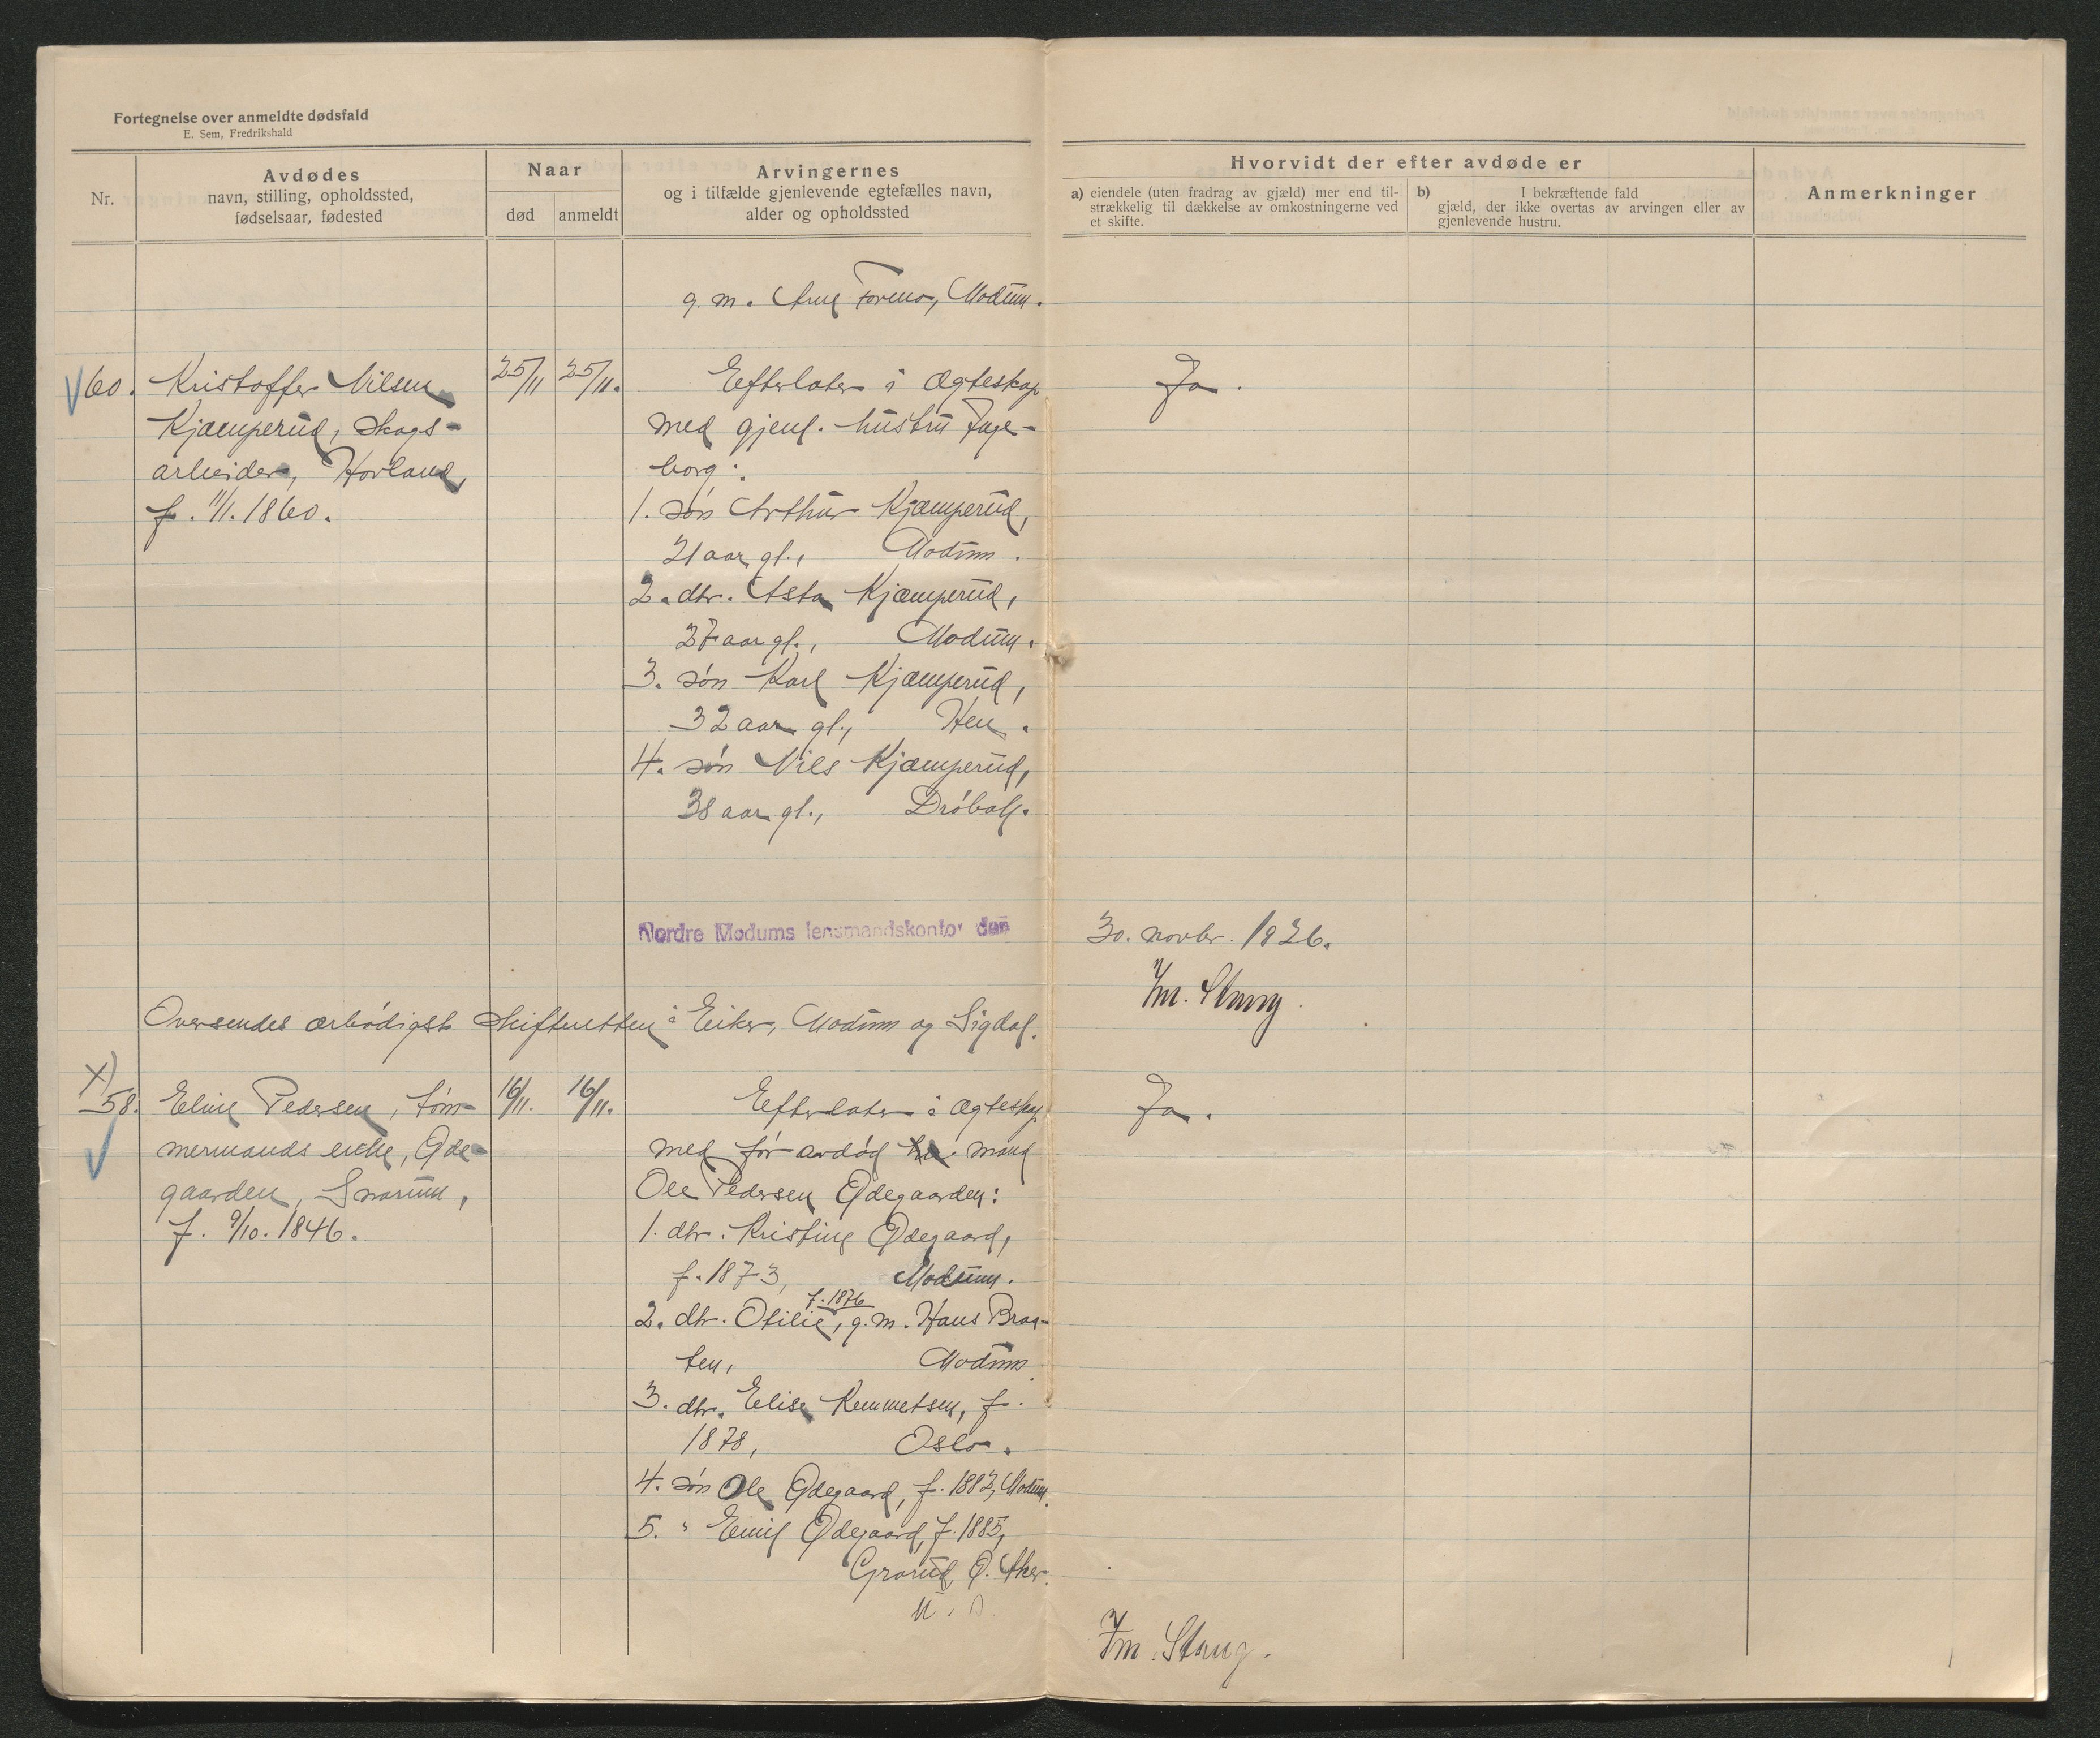 Fortegnelse over anmeldte dødsfald
E. Sem, Fredrikshald
Nr.
Avdødes
navn, stilling, opholdssted,
fødselsaar, fødested
Naar
død
anmeldt
Arvingernes
og i tilfælde gjenlevende egtefælles navn,
alder og opholdssted
Hvorvidt der efter avdøde er
a) eiendele (uten fradrag av gjæld) mer end til-
strækkelig til dækkelse av omkostningerne ved
et skifte.
b) I bekræftende fald
gjæld, der ikke overtas av arvingen eller av
gjenlevende hustru.
Anmerkninger
g. m. Arne Formo, Modum.
60.
Kristoffer Nilsen
Kjæmperud, skogs-
arbeider, Hovland,
f. 11/1. 1860.
25/11
25/11.
Efterlater i ægteskap
med gjenl. hustru Inge-
borg:
1. søn Arthur Kjæmperud,
21 aar gl., Modum.
2. dtr. Asta Kjæmperud,
27 aar gl., Modum.
3. søn Karl Kjæmperud,
32 aar gl., Hen.
4. søn Nils Kjæmperud,
38 aar gl., Drøbak.
Ja.
Nordre Modums lensmandskontor den
30. novbr. 1926.
Fm. Stang.
Oversendes ærbødigst skifteretten i Eiker, Modum og Sigdal.
x)
58.
Eline Pedersen, tøm-
mermands enke, Øde-
gaarden, Snarum,
f. 9/10. 1846.
16/11.
16/11.
Efterlater i ægteskap
med før avdød mand
Ole Pedersen Ødegaarden:
1. dtr. Kristine Ødegaard,
f. 1873, Modum.
f. 1876
2. dtr. Otilie, g. m. Hans Braa-
ten, Modum
3. dtr. Elise Kemmetsen, f.
1878, Oslo.
4. søn Ole Ødegaard, f. 1882, Modum.
5. " Emil Ødegaard, f. 1885,
Grorud, Ø. Aker.
Ja.
Fm. Stang.